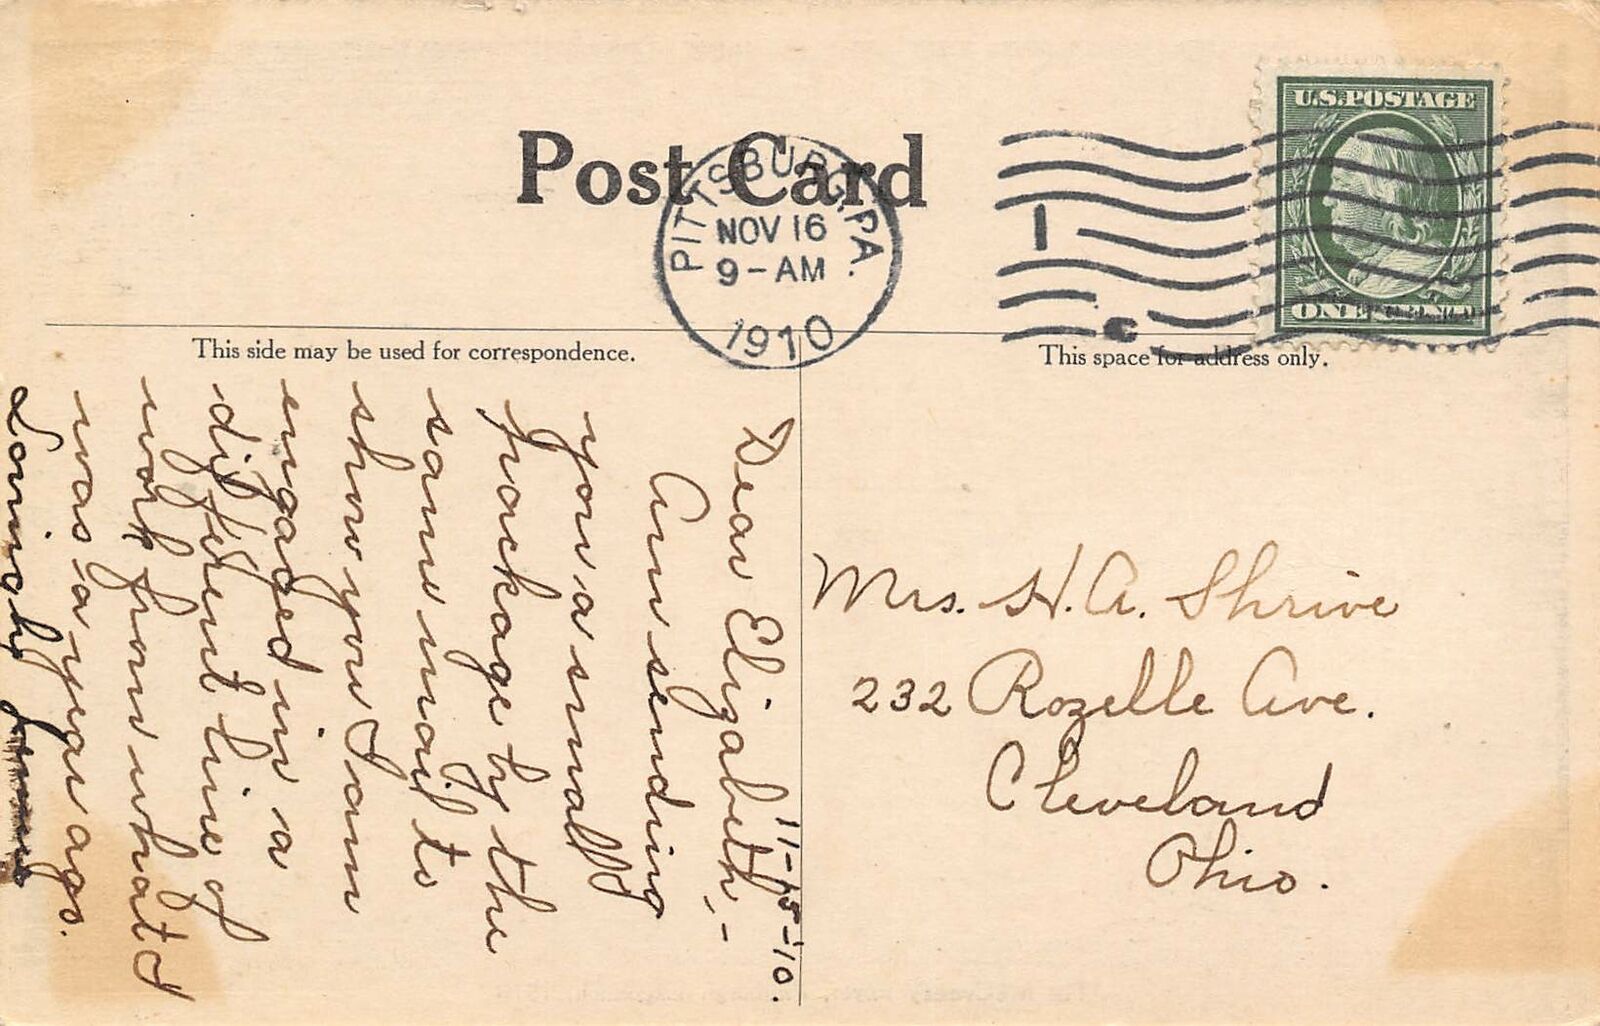 Post Card
PITTSBURG, PA.
NOV 16
9-AM
1910
U.S. POSTAGE
ONE
This side may be used for correspondence.
This space for address only.
11-15-'10.
Dear Elizabeth,-
Am sending
you a small
package by the
same mail to
show you I am
engaged in a
different line of
work from what I
was a year ago.
Lovingly
Mrs. H. A. Shrive
232 Rozelle Ave.
Cleveland
Ohio.